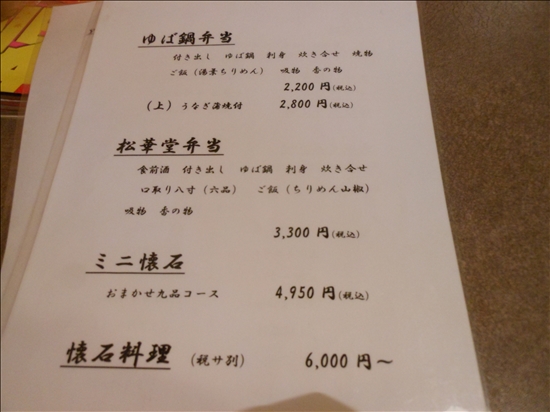 ゆば鍋弁当
付き出し ゆば鍋 刺身 炊き合せ 焼物
ご飯（湯葉ちりめん） 吸物 香の物
2,200 円（税込）
（上）うなぎ蒲焼付 2,800 円（税込）
松華堂弁当
食前酒 付き出し ゆば鍋 刺身 炊き合せ
口取り八寸（六品） ご飯（ちりめん山椒）
吸物 香の物
3,300 円（税込）
ミニ懐石
おまかせ九品コース 4,950 円（税込）
懐石料理 （税サ別） 6,000 円～